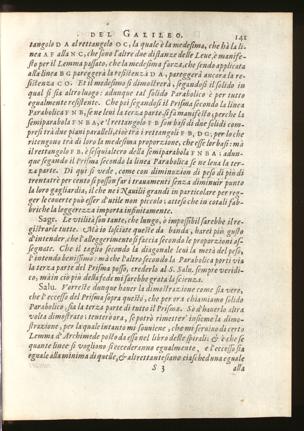 DEL GALILEO. 141
tangolo D A al rettangolo O C, la quale è la medesima, che hà la li-
nea A F alla N C, che sono l'altre due distanze delle Leue, è manife-
sto per il Lemma passato, che la medesima forza, che sendo applicata
alla linea B G pareggerà la resistenza D A, pareggerà ancora la re-
sistenza C O. Et il medesimo si dimostrerà, segandosi il solido in
qual si sia altro luogo: adunque tal solido Parabolico è per tutto
egualmente resistente. Che poi segandosi il Prisma secondo la linea
Parabolica F N B, se ne leui la terza parte, si fà manifesto, perche la
semiparabola F N B A, e 'l rettangolo F B son basi di due solidi com-
presi trà due piani paralleli, cioè trà i rettangoli F B, D G; per lo che
ritengono trà di loro la medesima proporzione, che esse lor basi: mà
il rettangolo F B, è sesquialtero della semiparabola F N B A; adun-
que segando il Prisma secondo la linea Parabolica se ne leua la ter-
za parte. Di quì si vede, come con diminuzion di peso di più di
trentatrè per cento si posson far i trauamenti senza diminuir punto
la loro gagliardia, il che ne i Nauilii grandi in particolare per reg-
ger le couerte può esser d'utile non piccolo; atteso che in cotali fab-
briche la leggerezza importa infinitamente.
Sagr. Le vtilità son tante, che lungo, ò impossibil sarebbe il re-
gistrarle tutte. Mà io lasciate queste da banda, harei più gusto
d'intender, che l'alleggerimento si faccia secondo le proporzioni as-
segnate. Che il taglio secondo la diagonale leui la metà del peso,
l'intendo benissimo: mà che l'altro secondo la Parabolica porti via
la terza parte del Prisma posso, crederlo al S. Salu. sempre veridi-
co, mà in ciò più della fede mi sarebbe grata la scienza.
Salu. Vorreste dunque hauer la dimostrazione come sia vero,
che l'eccesso del Prisma sopra questo, che per ora chiamiamo solido
Parabolico, sia la terza parte di tutto il Prisma. Sò d'hauerlo altra
volta dimostrato; tenterò ora, se potrò rimetter' insieme la dimo-
strazione, per la quale intanto mi souuiene, che mi seruiuo di certo
Lemma d'Archimede posto da esso nel libro delle spirali; & è che se
quante linee si vogliono si eccederanno egualmente, e l'eccesso sia
eguale alla minima di quelle, & altrettante siano ciascheduna eguale
S 3 alla